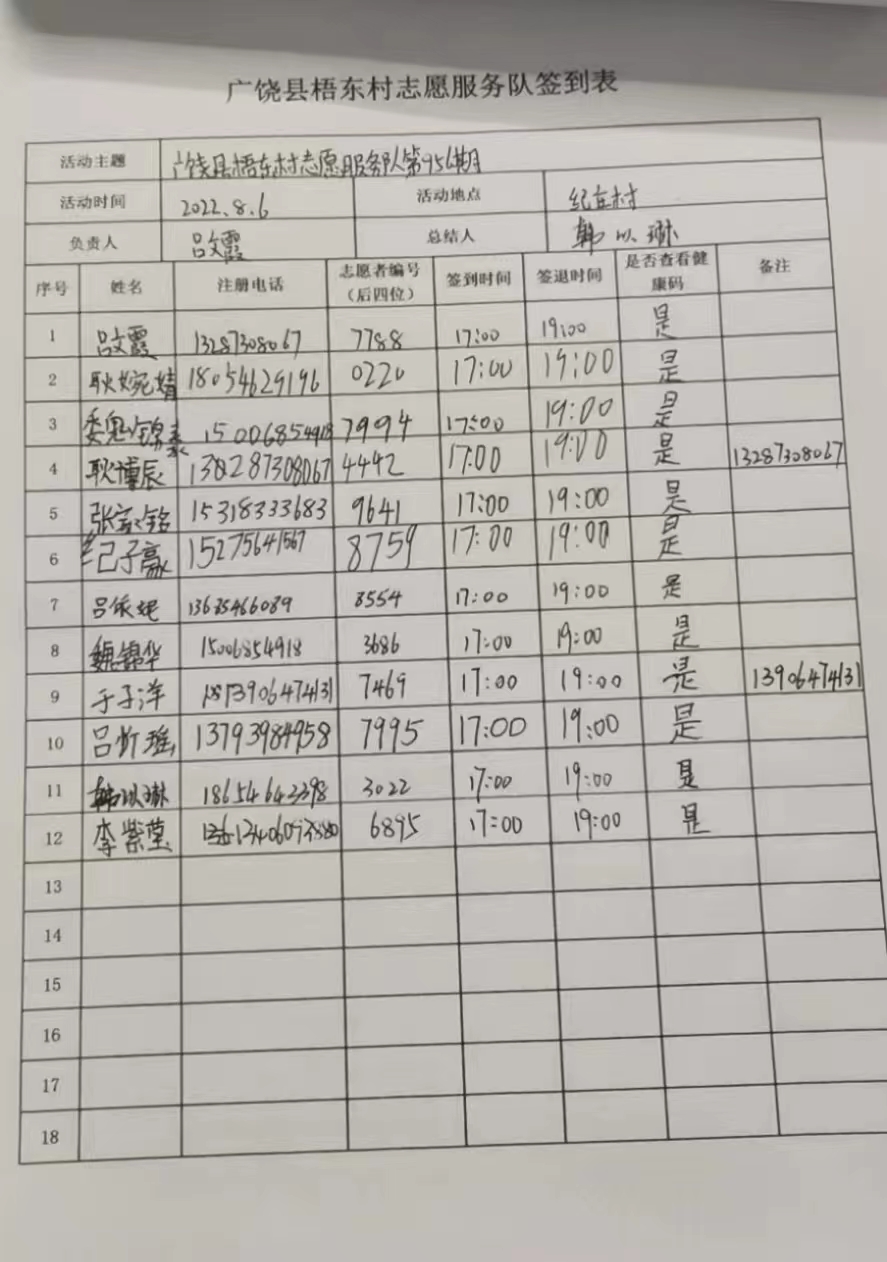 广饶县梧东村志愿服务队签到表
活动主题 广饶县梧东村志愿服务队第956期
活动时间 2022.8.6 活动地点 纪庄村
负责人 吕文霞 总结人 韩以琳
序号 姓名 注册电话 志愿者编号（后四位） 签到时间 签退时间 是否查看健康码 备注
1 吕文霞 13287308067 7788 17:00 19:00 是
2 耿婉婧 18054629196 0220 17:00 19:00 是
3 15006854918 7994 17:00 19:00 是
4 耿博辰 4492 17:00 19:00 是 13287308067
5 张 铭 15318333683 9641 17:00 19:00 是
6 纪子豪 15275641567 8759 17:00 19:00 是
7 吕依妮 8554 17:00 19:00 是
8 魏锦华 15006854918 3686 17:00 19:00 是
9 于子洋 13906474131 7469 17:00 19:00 是 13906474131
10 吕忻瑶 13793984958 7995 17:00 19:00 是
11 韩以琳 18654642398 3022 17:00 19:00 是
12 李紫莹 6895 17:00 19:00 是
13
14
15
16
17
18